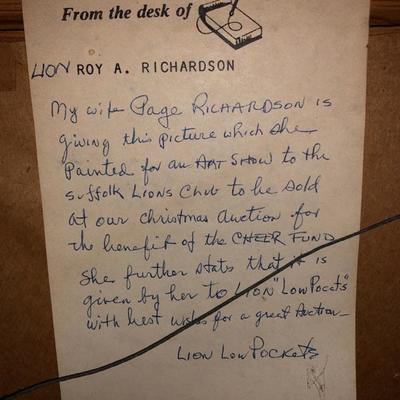 From the desk of
LION ROY A. RICHARDSON
My wife Page RICHARDSON is
giving this picture which she
Painted for an ART SHOW to the
Suffolk Lions Club to be sold
at our christmas Auction for
the benefit of the CHEER FUND
She further stats that it is
given by her to LION "Low Pocets"
with best wishes for a great Auction—
LION LOW POCKETS